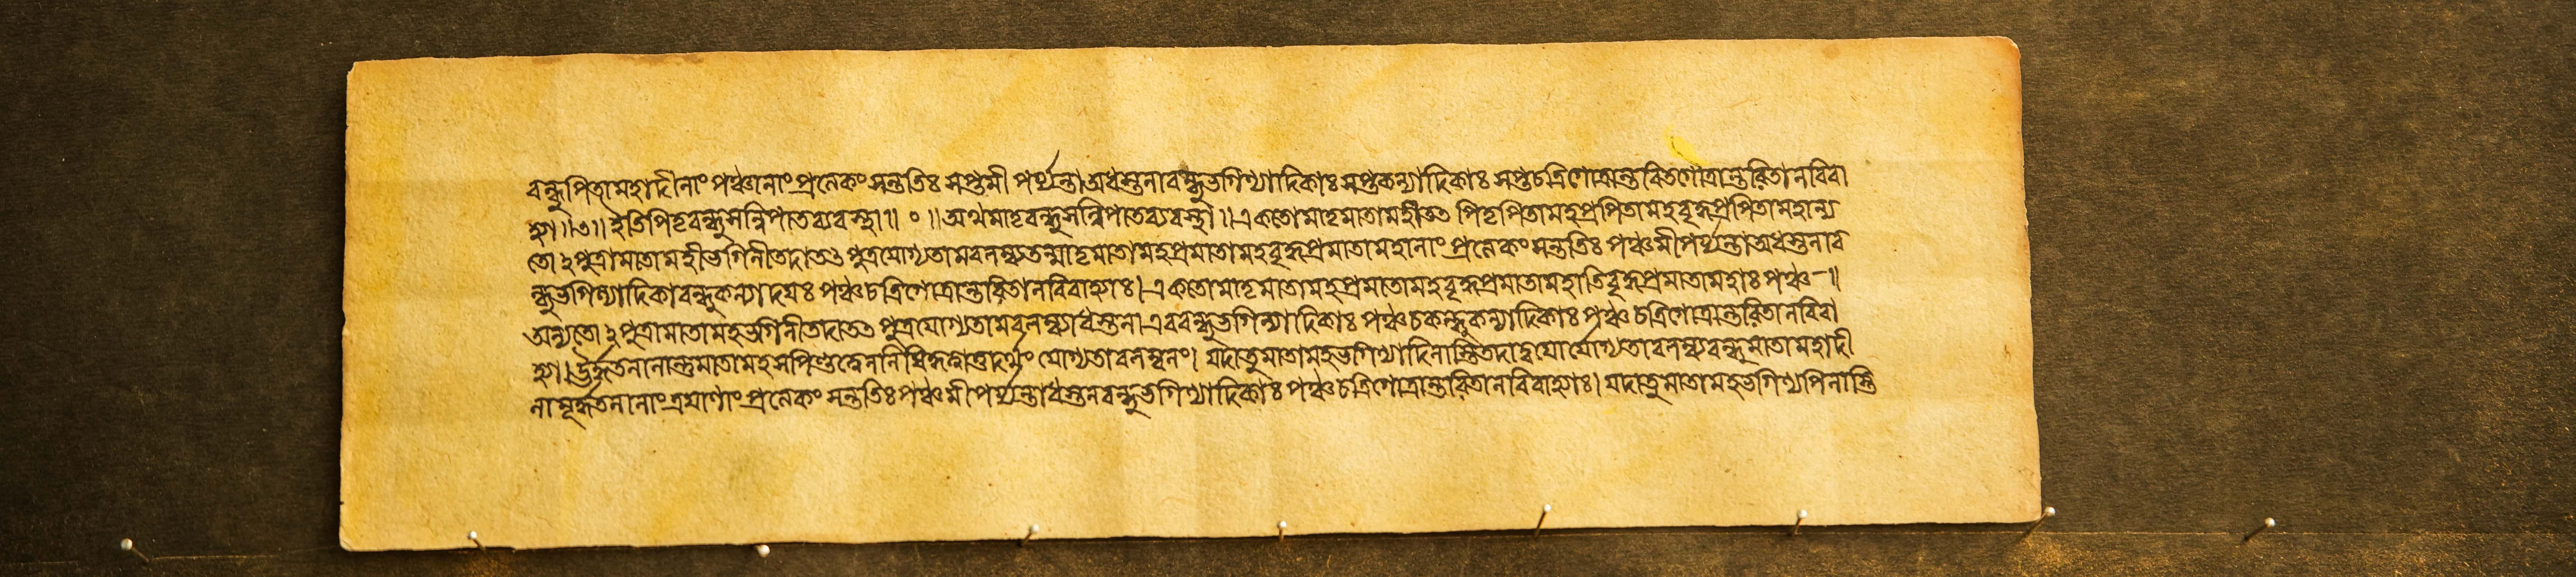 বন্ধুপিতামহাদীনাং পঞ্চানাং প্রত্যেকং সন্ততিঃ সপ্তমী পর্য্যন্তা অধস্তনাবন্ধুভগিন্যাদিকাঃ সপ্তকন্যাদিকাঃ সপ্তচত্রিগোত্রান্তরিতগোত্রান্তরিতানবিবা
হ্যা॥৩॥ইতিপিতৃবন্ধুসন্নিপাতব্যবস্থা॥ ০ ॥অথমাতৃবন্ধুসন্নিপাতব্যবস্থা॥একতোমাতৃমাতামহীতত পিতৃপিতামহপ্রপিতামহবৃদ্ধপ্রপিতামহান্য
তোঽপুত্রামাতামহীভগিনীতদাতত্তপুত্রযোগ্যতামবলম্ব্যতন্মাতৃমাতামহপ্রমাতামহবৃদ্ধপ্রমাতামহানাং প্রত্যেকং সন্ততিঃ পঞ্চমীপর্য্যন্তাঅধস্তনাব
ন্ধুভগিন্যাদিকাবন্ধুকন্যাদয়ঃ পঞ্চচত্রিগোত্রান্তরিতানবিবাহ্যাঃ।একতোমাতৃমাতামহপ্রমাতামহবৃদ্ধপ্রমাতামহাতিবৃদ্ধপ্রমাতামহাঃ পঞ্চ-॥
অন্যতোঽপুত্রামাতামহভগিনীতদাতত্র পুত্রযোগ্যতামবলম্ব্যাধস্তনা এববন্ধুভগিন্যাদিকাঃ পঞ্চচকন্ধুকন্যাদিকাঃ পঞ্চচত্রিগোত্রান্তরিতানবিবা
হ্যা। যোগ্যতাবলম্বনং। যদাতুমাতামহভগিন্যাদিনাস্তিতদাদ্বয়োর্যোগ্যতাবলম্ব্যবন্ধুমাতামহাদী
নামূর্দ্ধতনানাংত্রয়াণাং প্রত্যেকং সন্ততিঃপঞ্চমীপর্য্যন্তাধস্তনবন্ধুভগিন্যাদিকাঃ পঞ্চচত্রিগোত্রান্তরিতানবিবাহ্যাঃ। যদাতুমাতামহভগিন্যপিনাস্তি